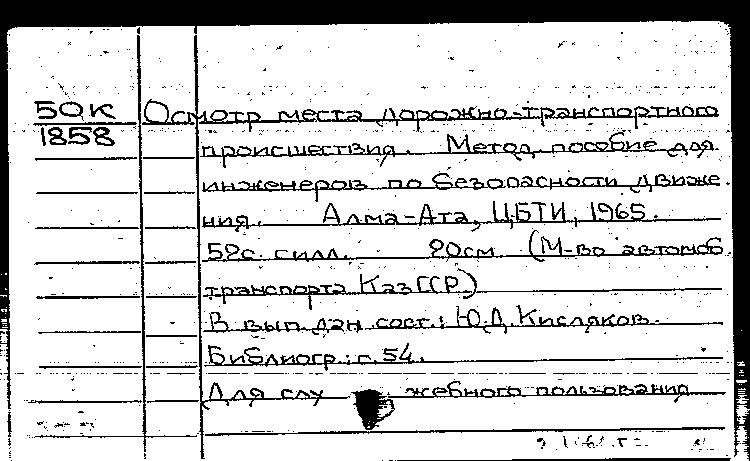 50к Осмотр места дорожно-транспортного
1858 происшествия. Метод. пособие для
инженеров по безопасности движе-
ния. Алма-Ата, ЦБТИ, 1965.
52с. с илл. 20см (М-во автомоб.
транспорта КазССР)
В вып. дан. сост.: Ю.Д. Кисляков.
Библиогр.: с. 54.
Для служебного пользования